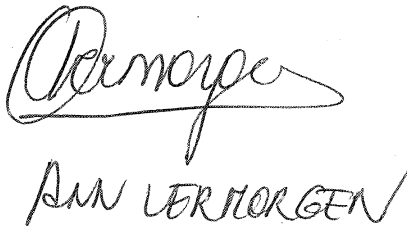 Vermorgen
ANN VERMORGEN